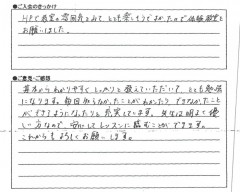 ●ご入会のきっかけ
HPで教室の雰囲気をみて、とても楽しそうだったので体験教室を
お願いしました。
●ご意見・ご感想
基本からわかりやすく、しっかりと教えていただいて、とても勉強
になります。毎回知らなかったことがわかったり、できなかったこと
ができるようになったりと充実しています。先生は明るくて優
しい方なので、安心してレッスンに臨むことができます。
これからもよろしくお願いします。